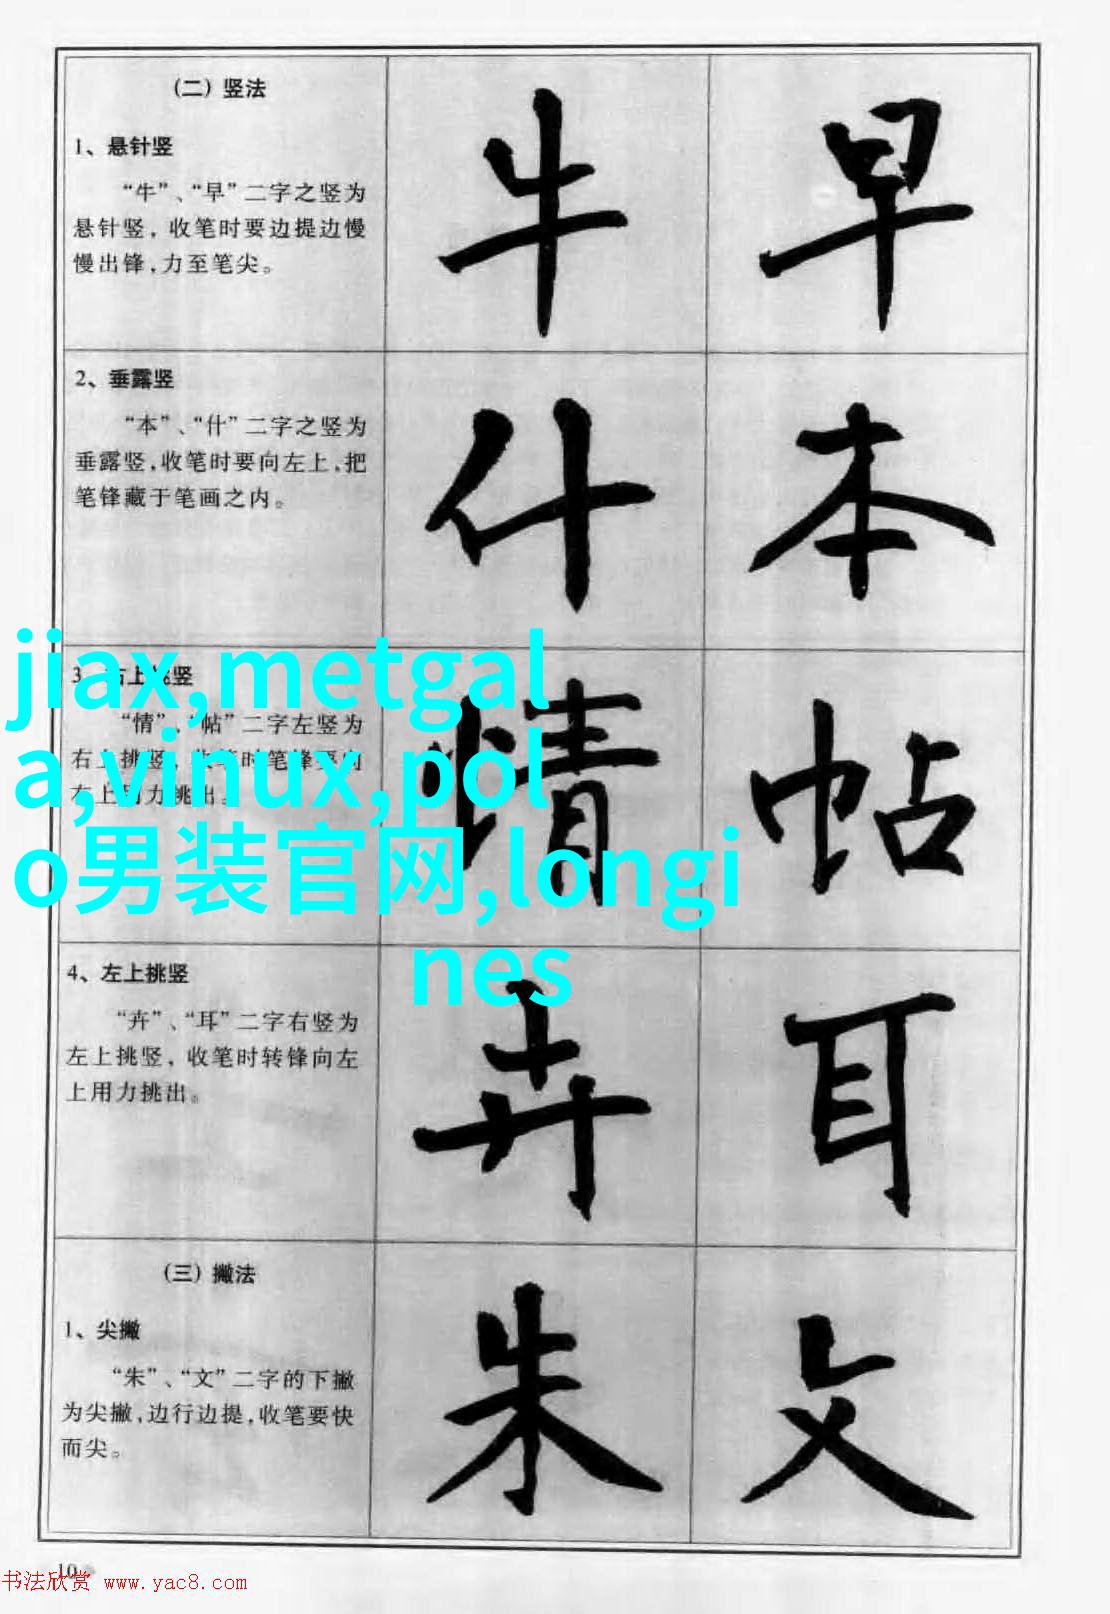 (二) 竖法
1、悬针竖
“牛”、“早”二字之竖为
悬针竖, 收笔时要边提边慢
慢出锋,力至笔尖。
牛
早
2、垂露竖
“本”、“什”二字之竖为
垂露竖,收笔时要向左上,把
笔锋藏于笔画之内。
什
本
jiax,metgal
a,vinux,pol
o男装官网,longi
nes
3、右上挑竖
“情”、“帖”二字左竖为
右上挑竖,
右上用力挑出。
情
帖
4、左上挑竖
“卉”、“耳”二字右竖为
左上挑竖, 收笔时转锋向左
上用力挑出。
卉
耳
(三) 撇法
1、尖撇
“朱”、“文”二字的下撇
为尖撇,边行边提,收笔要快
而尖。
朱
文
10
书法欣赏 www.yac8.com